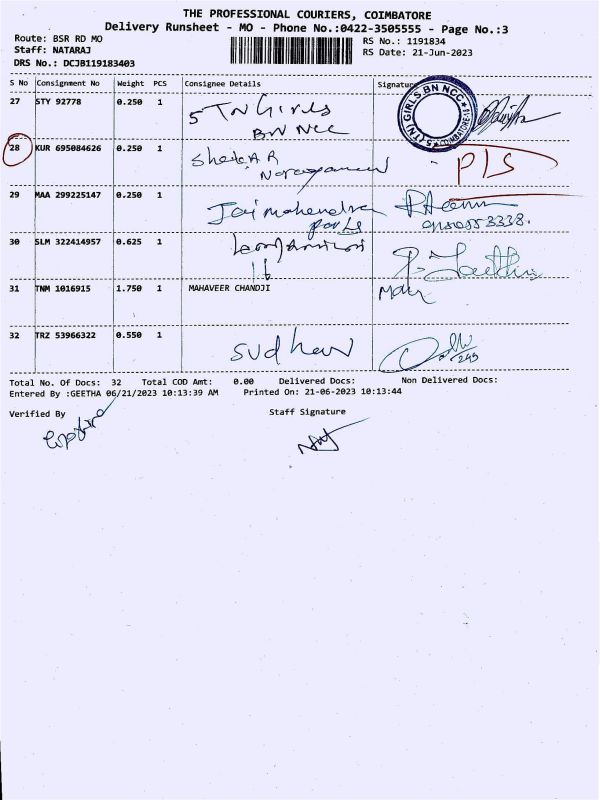 THE PROFESSIONAL COURIERS, COIMBATORE
Delivery Runsheet - MO - Phone No.:0422-3505555 - Page No.:3
Route: BSR RD MO
Staff: NATARAJ
DRS No.: DCJB119183403
RS No.: 1191834
RS Date: 21-Jun-2023
S No Consignment No Weight PCS Consignee Details Signature
27 STY 92778 0.250 1 5 TN Girls
BN NCC
5 (TN) GIRLS BN NCC COIMBATORE
28 KUR 695084626 0.250 1
PLS
29 MAA 299225147 0.250 1 Jai mahendra
30 SLM 322414957 0.625 1
31 TNM 1016915 1.750 1 MAHAVEER CHANDJI
32 TRZ 53966322 0.550 1 Sudhar
Total No. Of Docs: 32 Total COD Amt: 0.00 Delivered Docs: Non Delivered Docs:
Entered By :GEETHA 06/21/2023 10:13:39 AM Printed On: 21-06-2023 10:13:44
Verified By Staff Signature